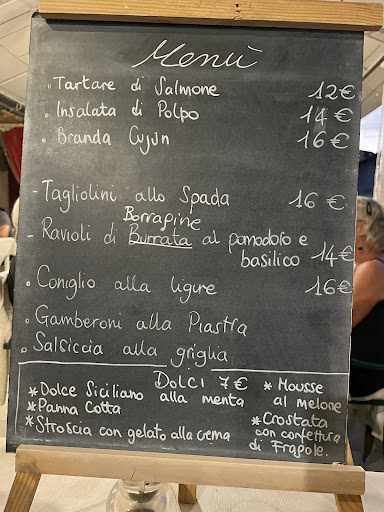 Menù
. Tartare di Salmone 12€
. Insalata di Polpo 14€
. Branda Cujun 16€
- Tagliolini allo Spada 16€
Borragine
- Ravioli di Burrata al pomodoro e
basilico 14€
. Coniglio alla ligure 16€
. Gamberoni alla Piastra
. Salsiccia alla griglia
DOLCI 7€
* Dolce Siciliano alla menta
* Panna Cotta
* Stroscia con gelato alla crema
* Mousse
al melone
* Crostata
con confettura
di Fragole.